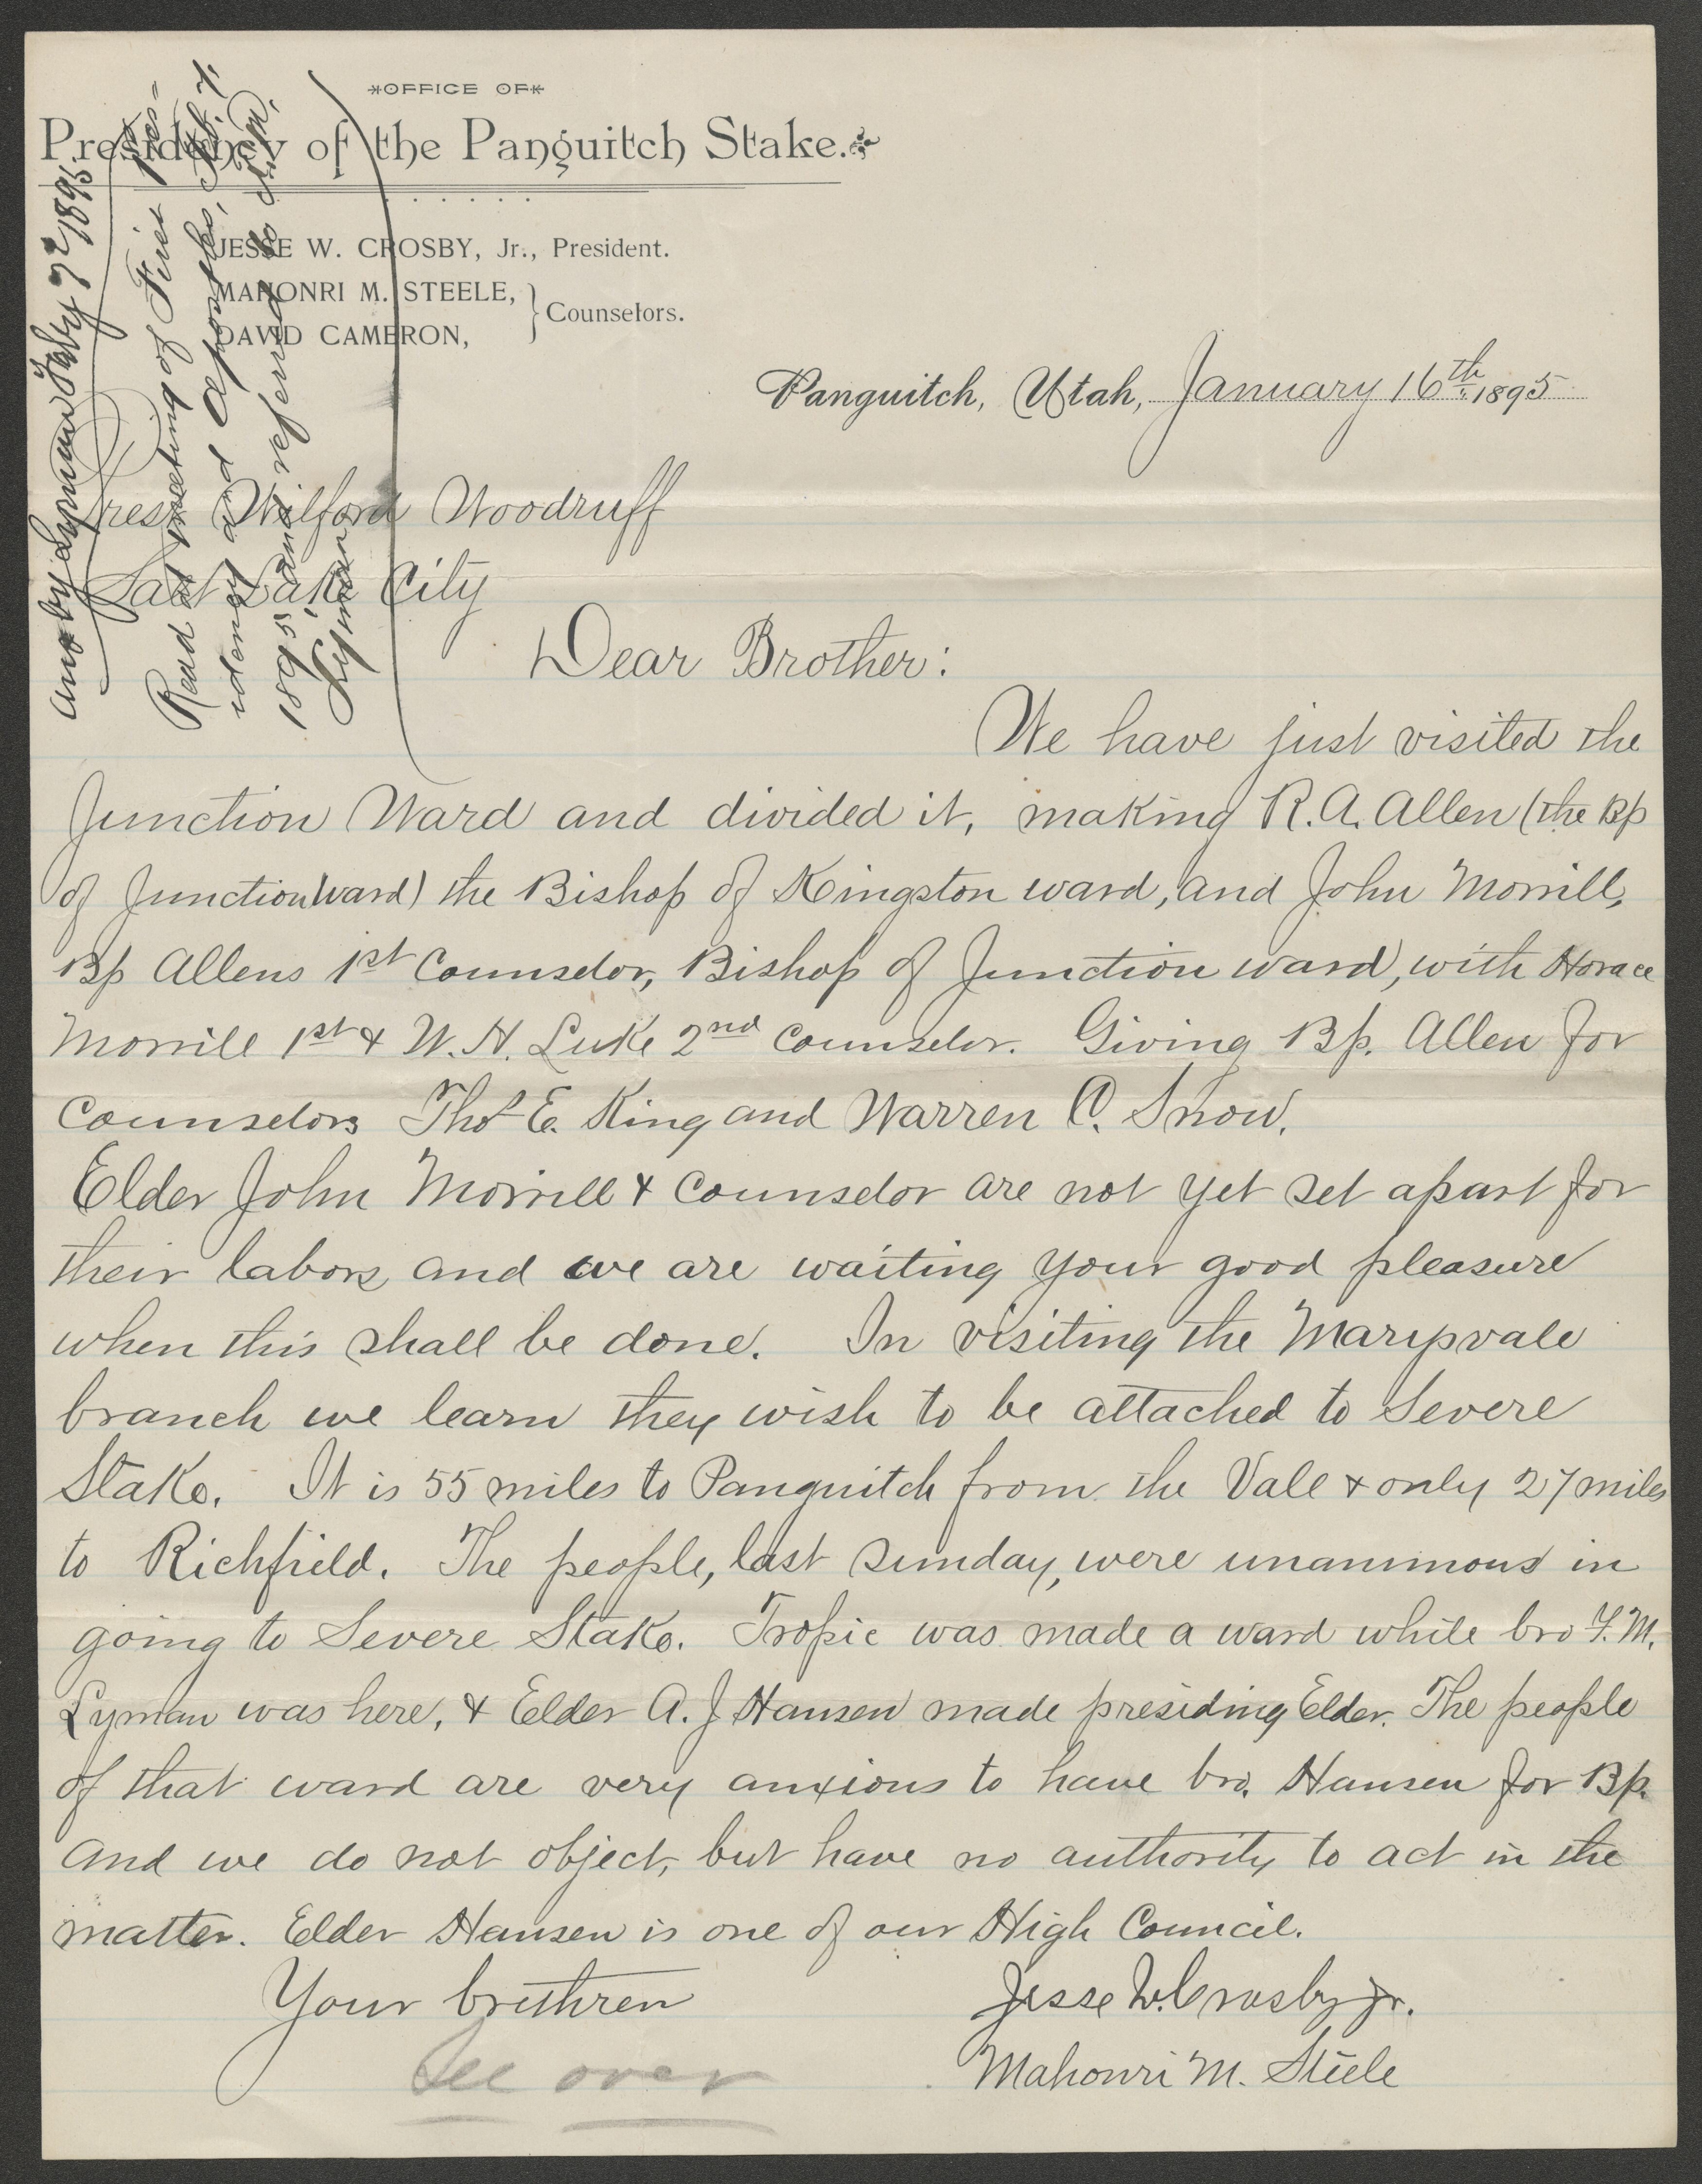 *OFFICE OF*
Presidency of the Panguitch Stake.
JESSE W. CROSBY, Jr., President.
MAHONRI M. STEELE,
DAVID CAMERON,
} Counselors.
Panguitch, Utah, January 16th, 1895
Prest Wilford Woodruff
Salt Lake City
Dear Brother:
We have just visited the
Junction Ward and divided it, making R. A. Allen (the Bp
of Junction Ward) the Bishop of Kingston ward, and John Morrill,
Bp Allens 1st Counselor, Bishop of Junction ward, with Horace
Morrill 1st & W. H. Luke 2nd Counselor. Giving Bp. Allen for
Counselors Thos E. King and Warren C. Snow.
Elder John Morrill & Counselor are not yet set apart for
their labors and we are waiting your good pleasure
when this shall be done. In visiting the Marysvale
branch we learn they wish to be attached to Severe
Stake. It is 55 miles to Panguitch from the Vale & only 27 miles
to Richfield. The people, last Sunday, were unanimous in
going to Severe Stake. Tropic was made a ward while bro F. M.
Lyman was here, & Elder A. J Hansen made presiding Elder. The people
of that ward are very anxious to have bro. Hansen for Bp.
and we do not object, but have no authority to act in the
matter. Elder Hansen is one of our High Council.
Your brethren
Jesse W. Crosby jr.
Mahonri M. Steele
See over
ans by Lyman Feby 7 1895
Read at meeting of First Pres-
idency and Apostles, Feb. 7,
1895, and referred to F. M.
Lyman